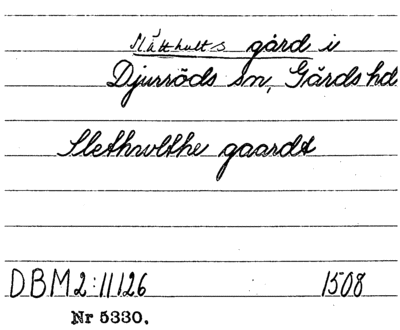 Slätthults gård i
Djurröds sn, Gärds hd
Slethwlthe gaardt
DBM2:11126 1508
Nr 5330.